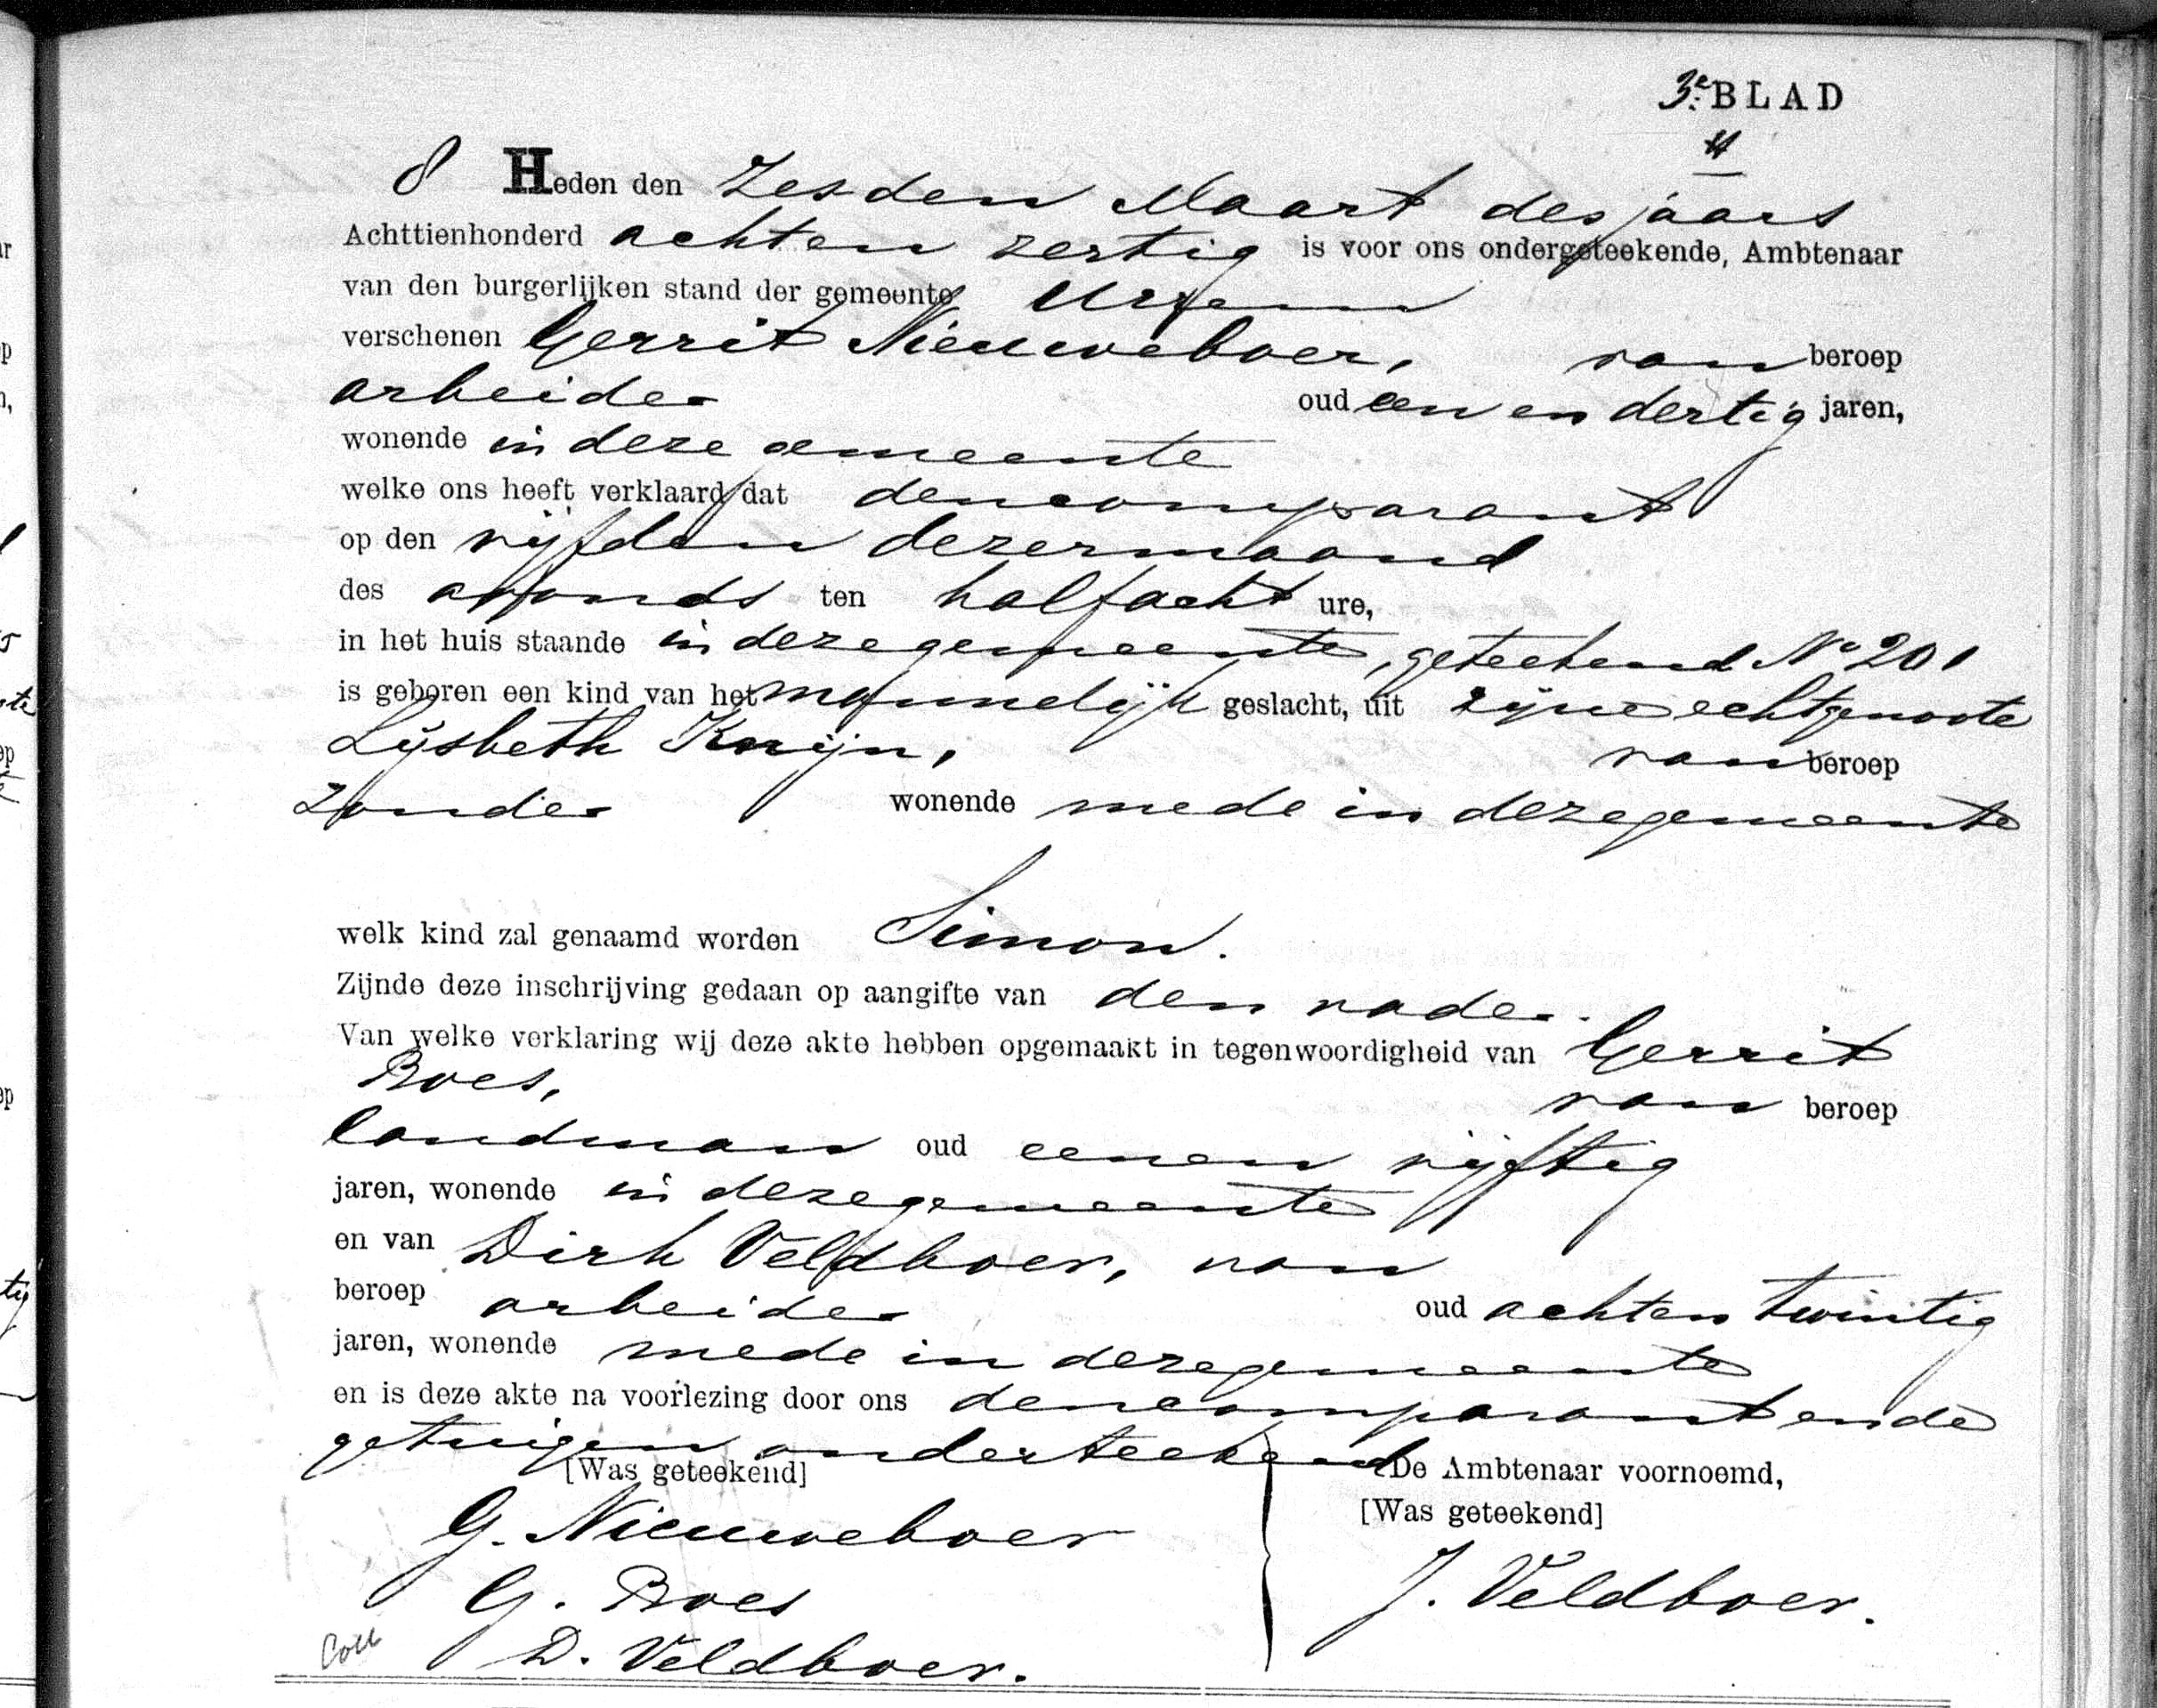 3e BLAD
8 Heden den Zesden Maart des jaars
Achttienhonderd achten zestig is voor ons ondergeteekende, Ambtenaar
van den burgerlijken stand der gemeente Ursem
verschenen Gerrit Nieuweboer, van beroep
arbeider oud een en dertig jaren,
wonende in deze gemeente
welke ons heeft verklaard dat den comparant
op den vijfden dezer maand
des avonds ten half acht ure,
in het huis staande in deze gemeente, geteekend No 201
is geboren een kind van het mannelijk geslacht, uit zijne echtgenoote
Lijsbeth Knijn, van beroep
zonder wonende mede in deze gemeente
welk kind zal genaamd worden Simon.
Zijnde deze inschrijving gedaan op aangifte van den vader.
Van welke verklaring wij deze akte hebben opgemaakt in tegenwoordigheid van Gerrit
Boes, van beroep
landman oud eenen vijftig
jaren, wonende in deze gemeente
en van Dirk Veldboer, van
beroep arbeider oud achten twintig
jaren, wonende mede in deze gemeente
en is deze akte na voorlezing door ons den comparant en de
getuigen onderteekend
[Was geteekend] De Ambtenaar voornoemd,
[Was geteekend]
G. Nieuweboer
G. Boes
J. Veldboer.
D. Veldboer.
Coll